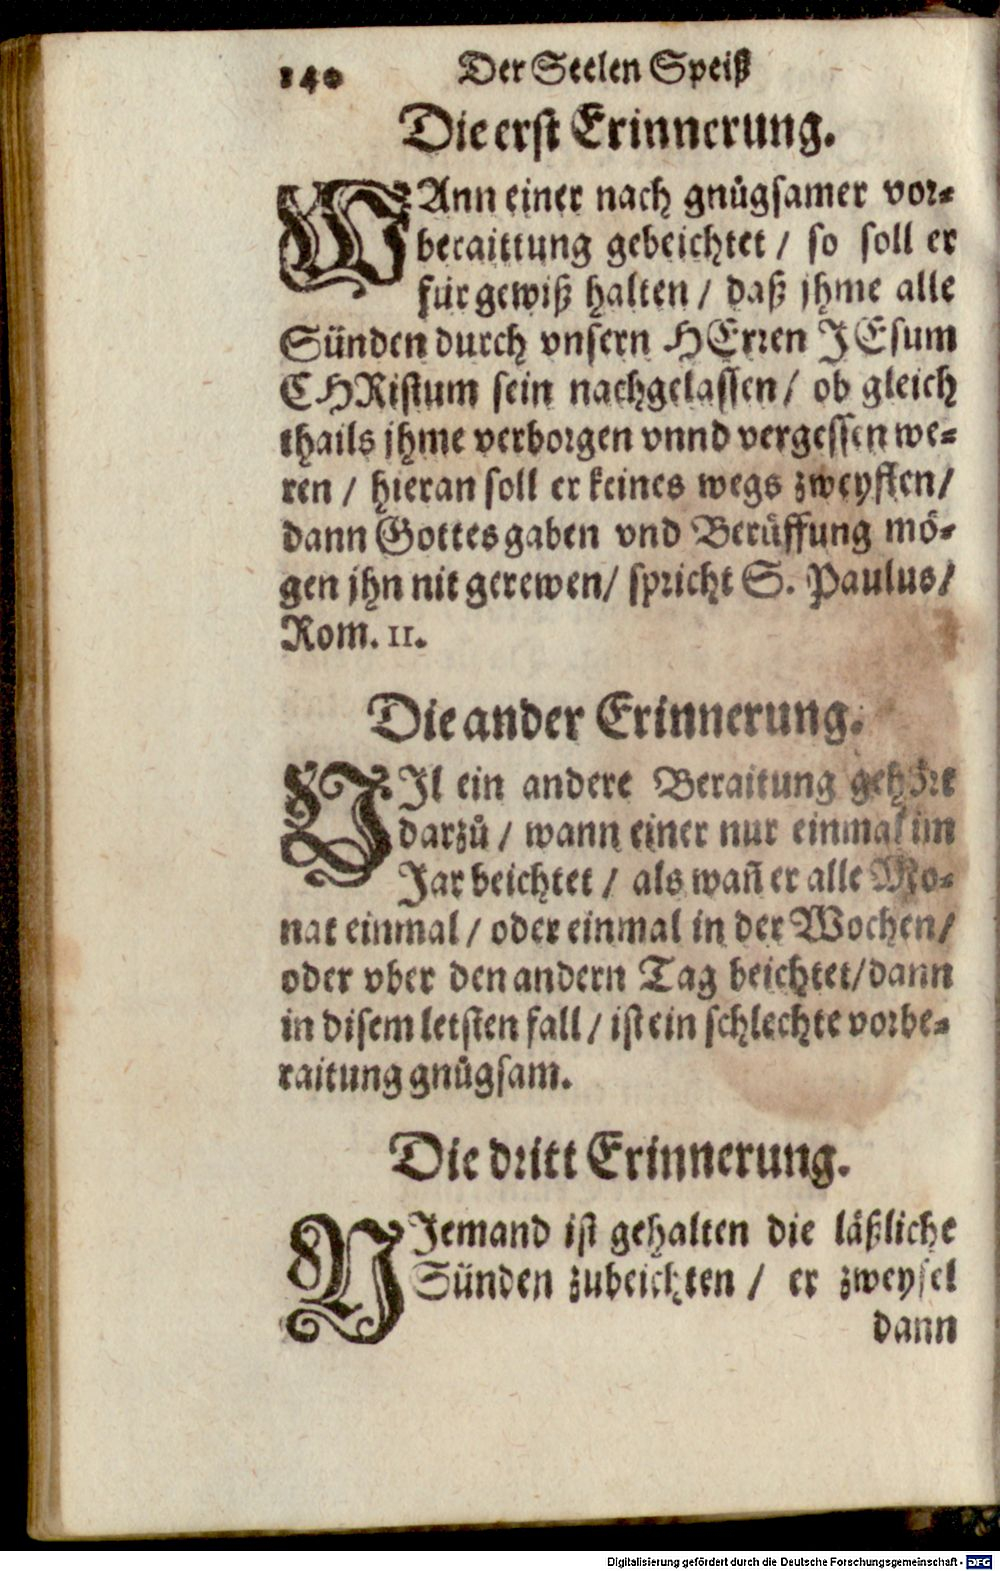 140 Der Seelen Speiß
Die erst Erinnerung.
WAnn einer nach gnůgsamer vor-
beraittung gebeichtet / so soll er
für gewiß halten / daß jhme alle
Sünden durch vnsern HErren JEsum
CHRistum sein nachgelassen / ob gleich
thails jhme verborgen vnnd vergessen we-
ren / hieran soll er keines wegs zweyflen /
dann Gottes gaben vnd Berůffung mö-
gen jhn nit gerewen / spricht S. Paulus /
Rom. 11.
Die ander Erinnerung.
VIl ein andere Beraitung gehört
darzů / wann einer nur einmal im
Jar beichtet / als wañ er alle Mo-
nat einmal / oder einmal in der Wochen /
oder vber den andern Tag beichtet / dann
in disem letsten fall / ist ein schlechte vorbe-
raitung gnůgsam.
Die dritt Erinnerung.
NIemand ist gehalten die läßliche
Sünden zubeichten / er zweyfel
dann
Digitalisierung gefördert durch die Deutsche Forschungsgemeinschaft - DFG